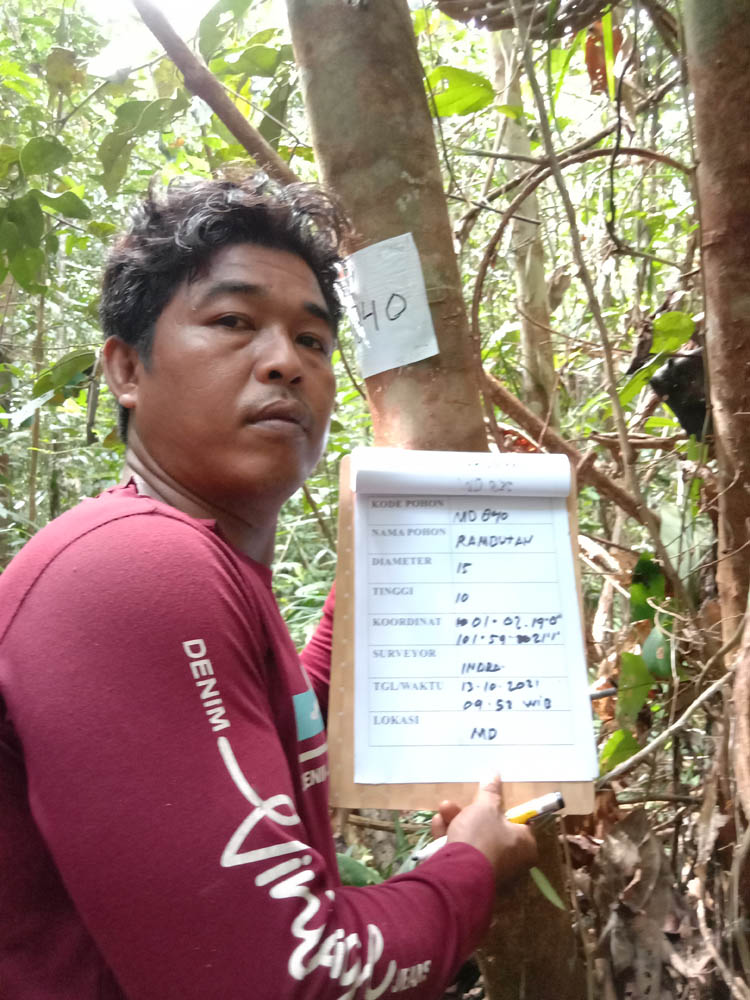 40
KODE POHON MD 040
NAMA POHON RAMBUTAN
DIAMETER 15
TINGGI 10
KOORDINAT 01.02.19.0"
101.59.
SURVEYOR INDRA
TGL/WAKTU 13.10.2021
09.52 WIB
LOKASI MD
DENIM
Vintage
JEANS